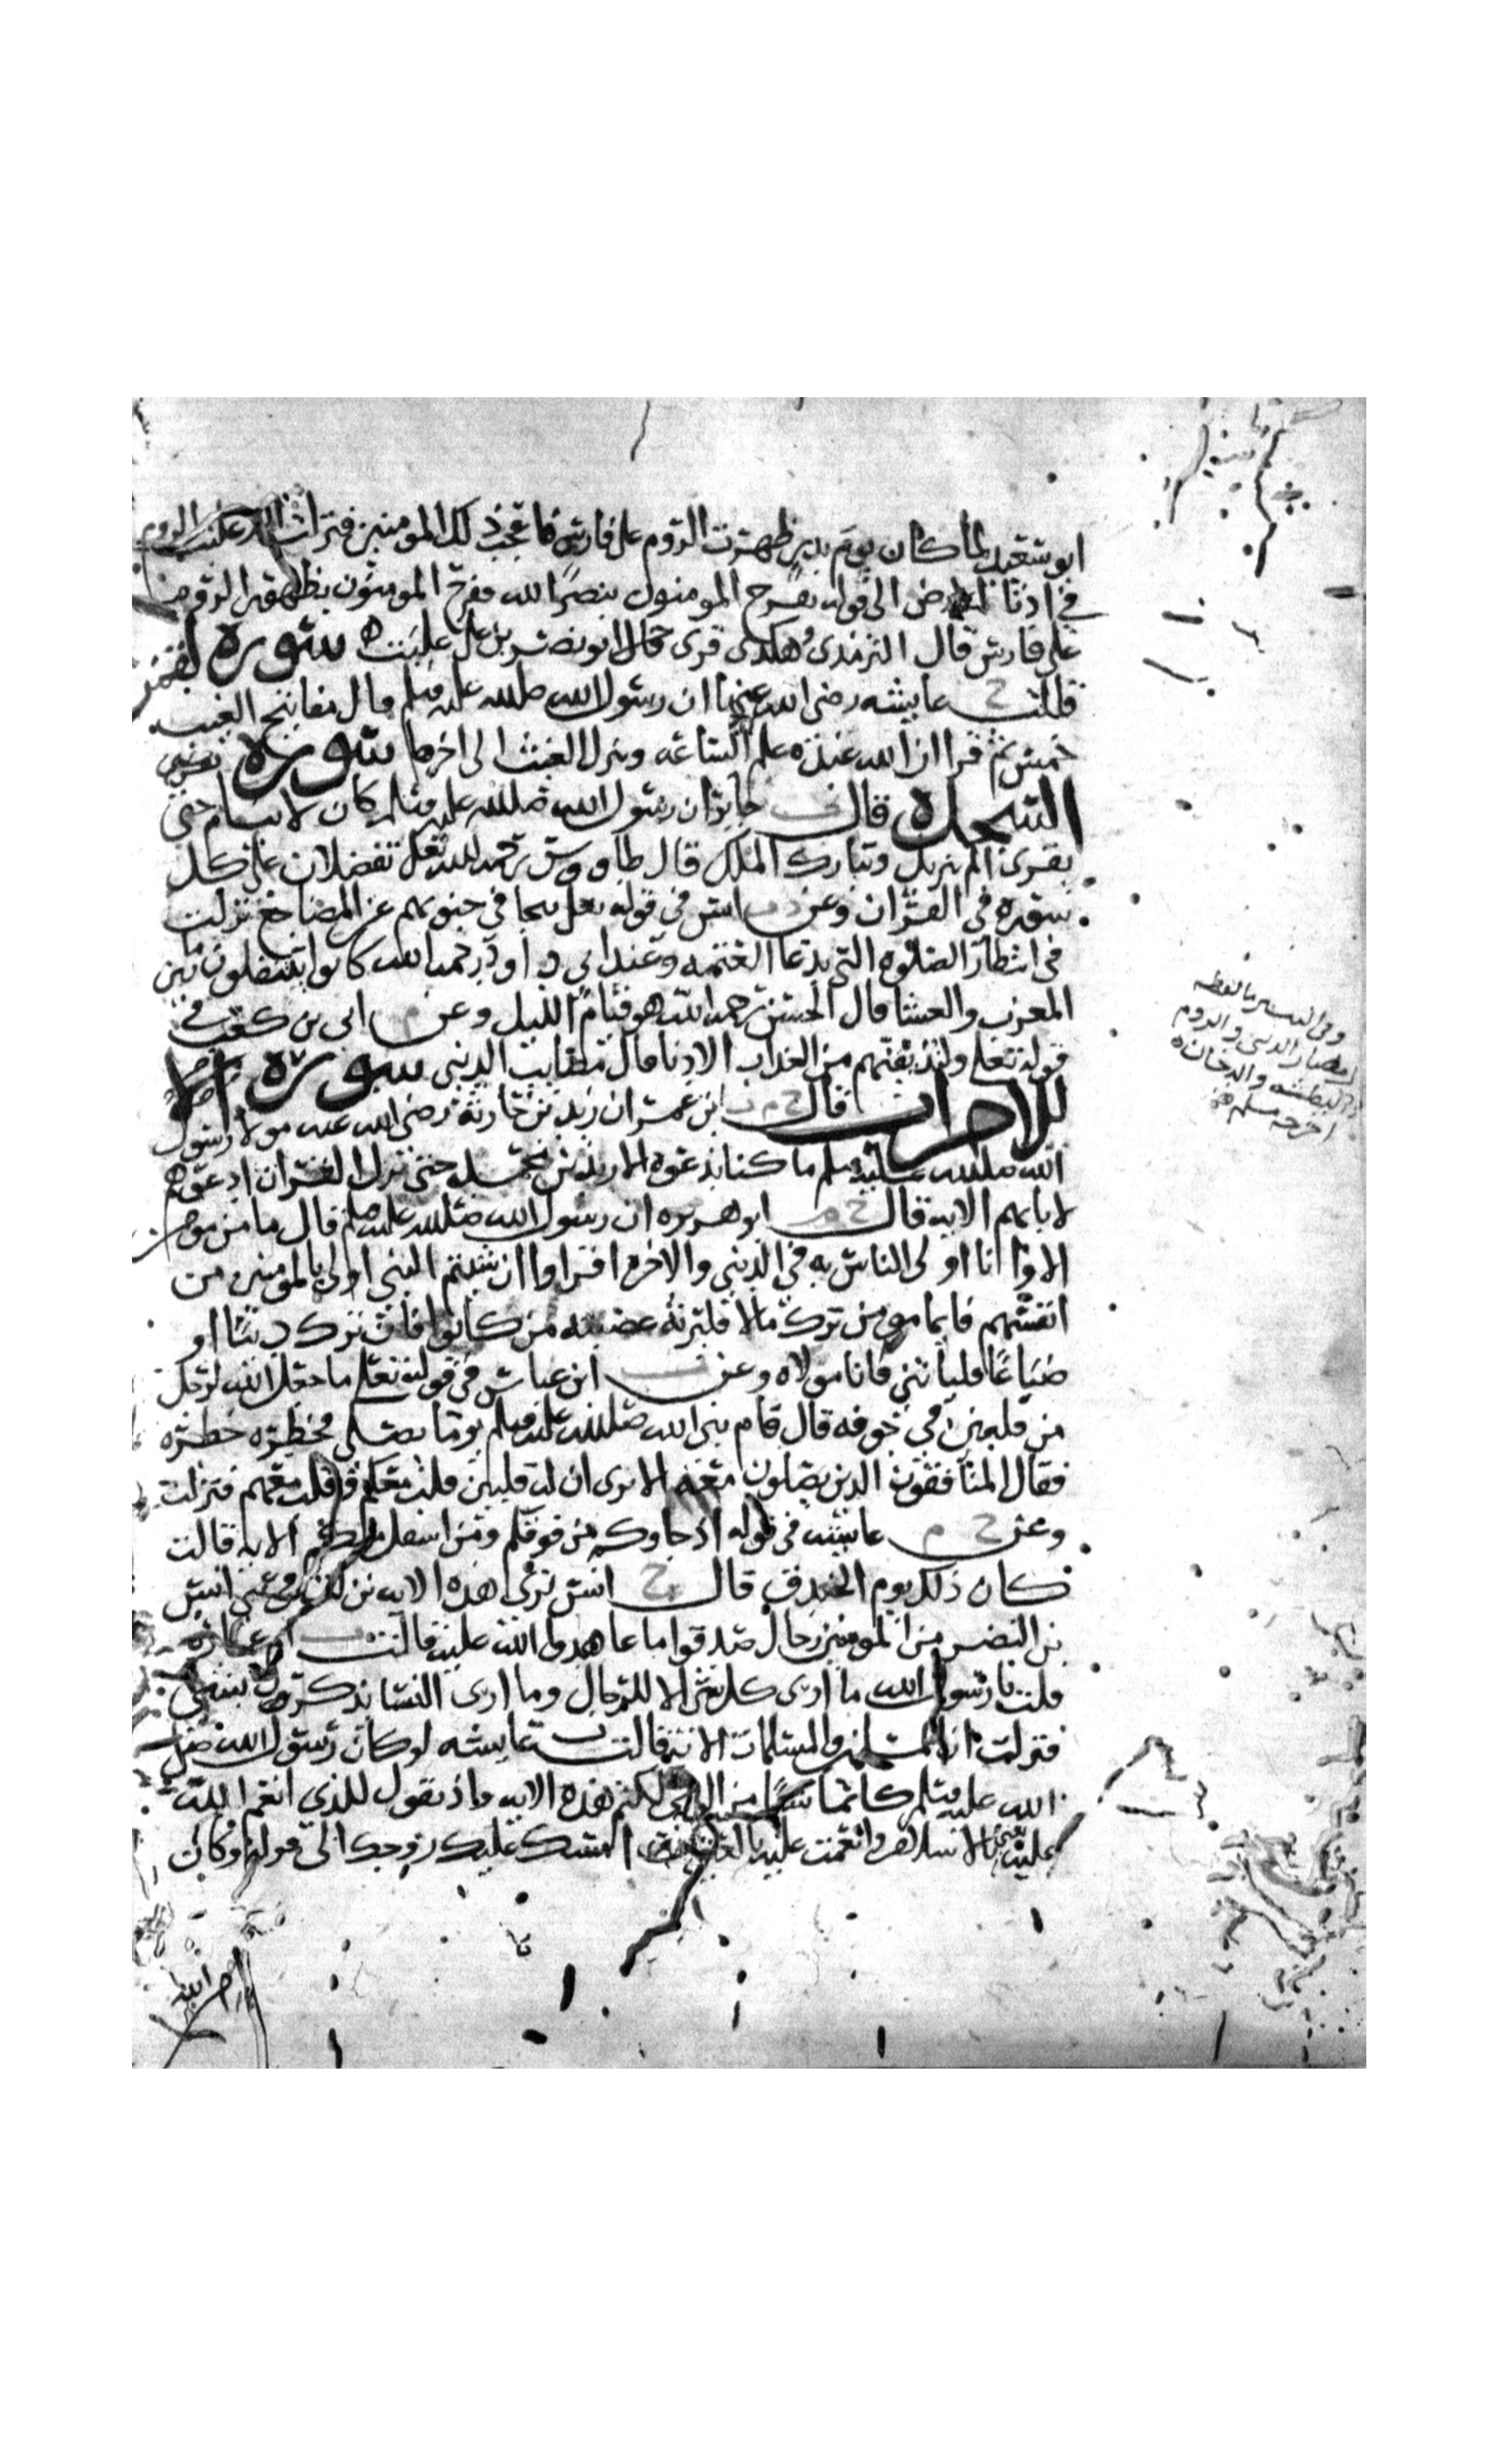 ابو سعيد لما كان يوم بدر ظهرت الروم على فارس فاعجب ذلك المومنين فنزلت الم غلبت الروم
في ادنا الارض الى قوله يفرح المومنون بنصر الله ففرح المومنون بظهور الروم
على فارس قال الترمذي هكذى قرى قال ابو نصر بن علي غلبت سوره لقمن
قالت ح عايشه رضي الله عنها ان رسول الله صلى الله عليه وسلم قال مفاتيح الغيب
خمس ثم قرا ان الله عنده علم الساعه وينزل الغيث الى اخرها سوره
السجده قال ت جابر ان رسول الله صلى الله عليه وسلم كان لا ينام حتى
يقرى الم تنزيل وتبارك الملك قال طاووس رحمه الله تعلى تفضلان على كل
سوره في القران وعن انس في قوله تعلى تتجافى جنوبهم عن المضاجع نزلت
في انتظار الصلوه التي يدعا العتمه وعند ابي داود رحمه الله كانوا يتنفلون ما بين
المغرب والعشا قال الحسن رحمه الله هو قيام الليل وعن م ابي بن كعب في
قوله تعلى ولنذيقنهم من العذاب الادنا قال مصايب الدنيى سوره الا
للاحزاب قال ح م ت ابن عمر ان زيد بن حارثه رضي الله عنه مولا رسول
الله صلى الله عليه وسلم ما كنا ندعوه الا زيد بن محمد حتى نزل القران ادعوهم
لابايهم الايه قال ح م ابو هريره ان رسول الله صلى الله عليه وسلم قال ما من مومن
الا وانا اولى الناس به في الدنيى والاخره اقراوا ان شيتم النبي اولى بالمومنين من
انفسهم فايما مومن ترك مالا فليرثه عصبته من كانوا فان ترك دينا او
ضياعا فلياتني فانا مولاه وعن ت ابن عباس في قوله تعلى ما جعل الله لرجل
من قلبين في جوفه قال قام نبي الله صلى الله عليه وسلم يوما يصلي فخطره خطره
فقال المنافقون الذين يصلون معه الا ترى ان له قلبين قلب معكم وقلب معهم فنزلت
وعن ح م عايشه في قوله اذ جاوكم من فوقكم ومن اسفل منكم الايه قالت
كان ذلك يوم الخندق قال ح انس نرى هذه الايه نزلت في عمي انس
بن النضر من المومنين رجال صدقوا ما عاهدوا الله عليه قالت ت ام عماره
قلت يا رسول الله ما ارى كل شي الا للرجال وما ارى النسا يذكرن بشي
فنزلت ان المسلمين والمسلمات الايه قالت ت عايشه لو كان رسول الله صلى
الله عليه وسلم كاتما شيا من الوحي لكتم هذه الايه واذ تقول للذي انعم الله
عليه بالاسلام وانعمت عليه بالعتق امسك عليك زوجك الى قوله وكان
اخرجه مسلم